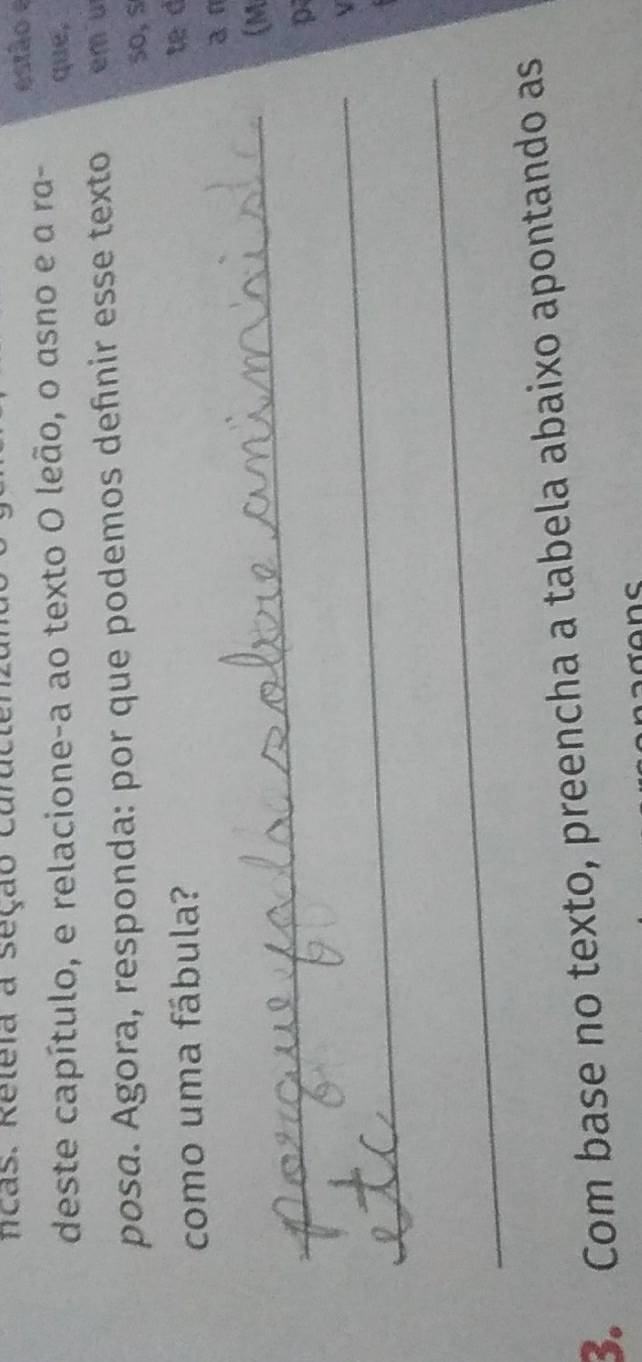 ficas. Releia a seção
deste capítulo, e relacione-a ao texto O leão, o asno e a ra-
posa. Agora, responda: por que podemos definir esse texto
como uma fábula?
porque fala sobre
etc
3. Com base no texto, preencha a tabela abaixo apontando as
estão
que,
em
so,
te
a
(M